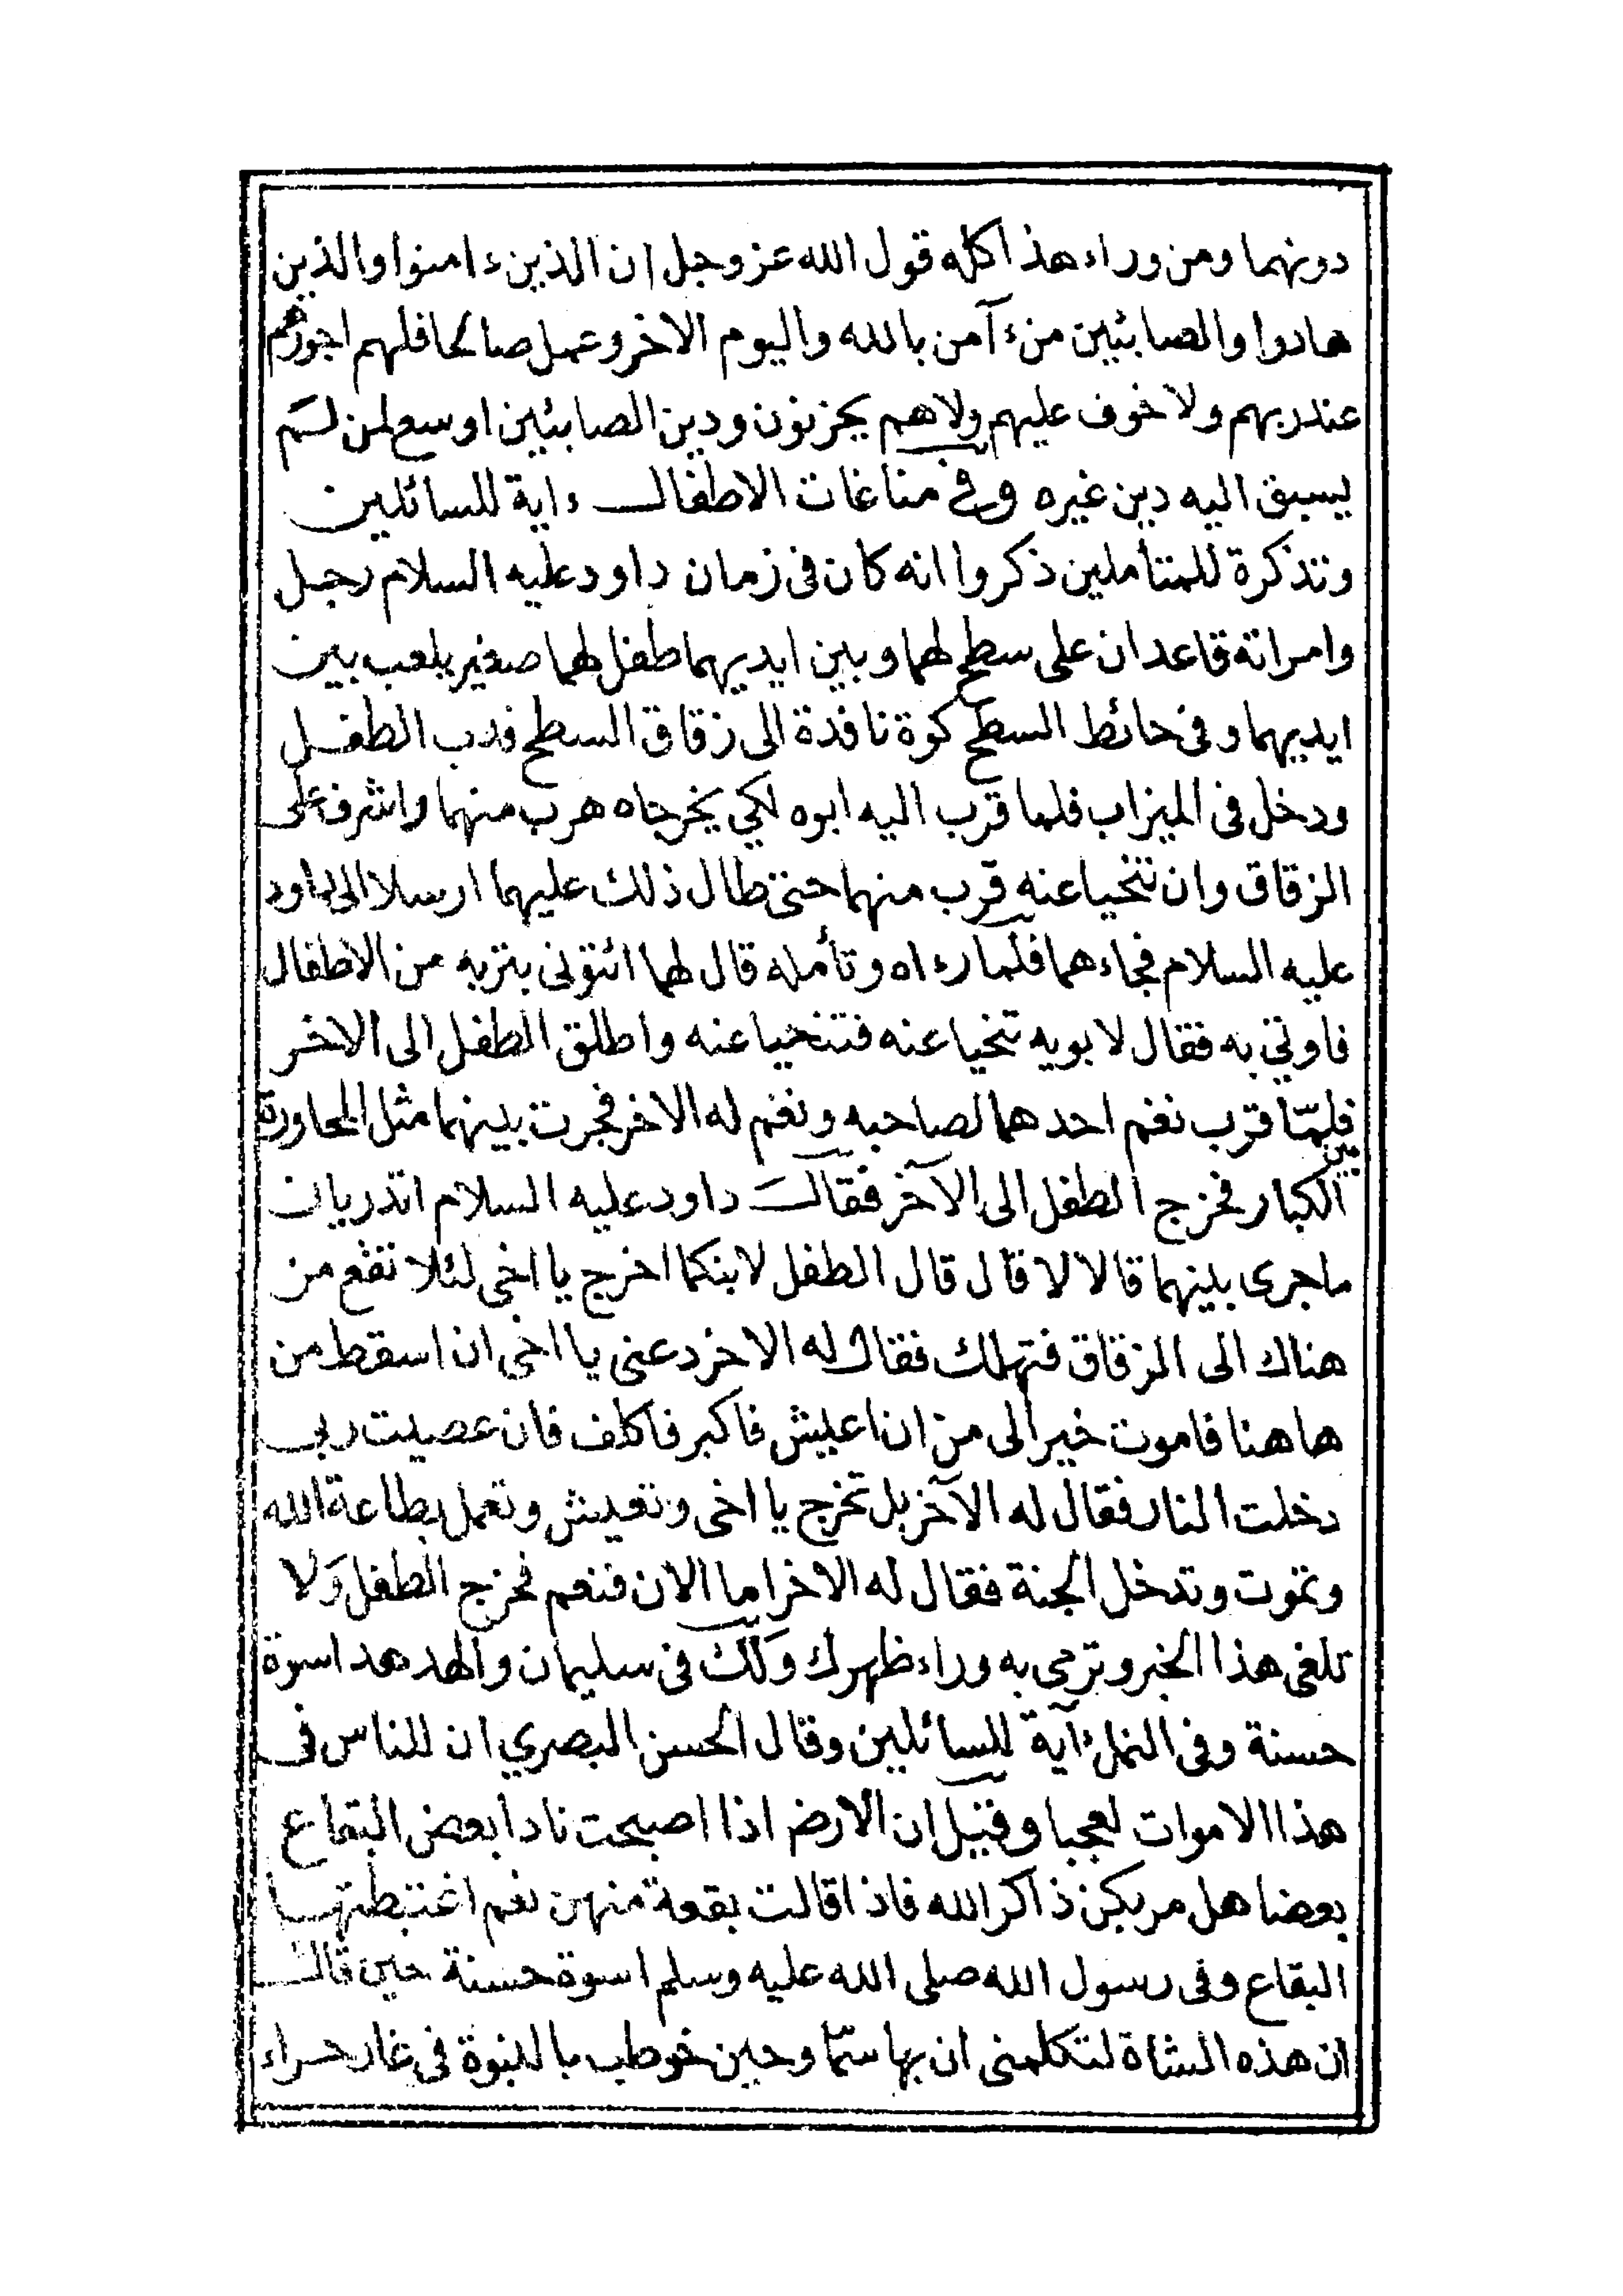 دونهما ومن وراء هذا كله قول الله عز وجل ان الذين ءامنوا والذين
هادوا والصابئين من ءآمن بالله واليوم الاخر وعمل صالحا فلهم اجورهم
عند ربهم ولا خوف عليهم ولا هم يحزنون ودين الصابئين اوسع لمن لم
يسبق اليه دين غيره وفي مناغات الاطفال ءاية للسائلين
وتذكرة للمتأملين ذكروا انه كان فى زمان داود عليه السلام رجل
وامراته قاعدان على سطح لهما وبين ايديهما طفل لهما صغير يلعب بين
ايديهما وفى حائط السطح كوة نافدة الى زقاق السطح فدب الطفل
ودخل فى الميزاب فلما قرب اليه ابوه لكي يخرجاه هرب منهما واشرف على
الزقاق وان تنحيا عنه قرب منهما حتى طال ذلك عليهما ارسلا الى داود
عليه السلام فجاءهما فلما رءاه وتأمله قال لهما ائتونى بتربه من الاطفال
فاوتي به فقال لابويه تنحيا عنه فتنحيا عنه واطلق الطفل الى الاخر
فلمّا قرب نغم احدهما لصاحبه ونغم له الاخر فجرت بينهما مثل المحاورة
بين الكبار فخرج الطفل الى الآخر فقال داود عليه السلام اتدريان
ما جرى بينهما قالا لا قال قال الطفل لابنكما اخرج يا اخى لئلا تقع من
هناك الى الزقاق فتهلك فقال له الاخر دعنى يا اخى ان اسقط من
هاهنا فاموت خير الى من ان اعيش فاكبر فاكلف فان عصيت ربى
دخلت النار فقال له الآخر بل تخرج يا اخى وتعيش وتعمل بطاعة الله
وتموت وتدخل الجنة فقال له الاخر اما الان فنعم فخرج الطفل وَلا
تلغى هذا الخبر وترمى به وراء ظهرك وَلك فى سليمان والهدهد اسوة
حسنة وفى النمل ءآية للسائلين وقال الحسن البصري ان للناس فى
هذا الاموات لعجبا وقيل ان الارض اذا اصبحت نادا بعض البقاع
بعضا هل مر بكن ذاكر الله فاذا قالت بقعة منهن نعم اغتبطتها
البقاع وفى رسول الله صلى الله عليه وسلم اسوة حسنة حين قال
ان هذه الشاة لتكلمنى ان بها سمّا وحين خوطب بالنبوة فى غار حراء